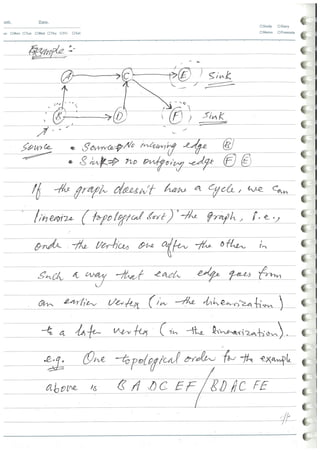 Example :-
A C E Sink
B D F Sink
Source • Source⇒No incoming edge B
• Sink⇒ no outgoing edge F E
If the graph doesn't have a cycle, we can
linearize (topological sort) the graph, i.e.,
order the vertices one after the other in
such a way that each edge goes from
an earlier vertex (in the linearization)
to a later vertex (in the linearization).
e.g. One topological order for the example
above is B A D C E F / B D A C F E